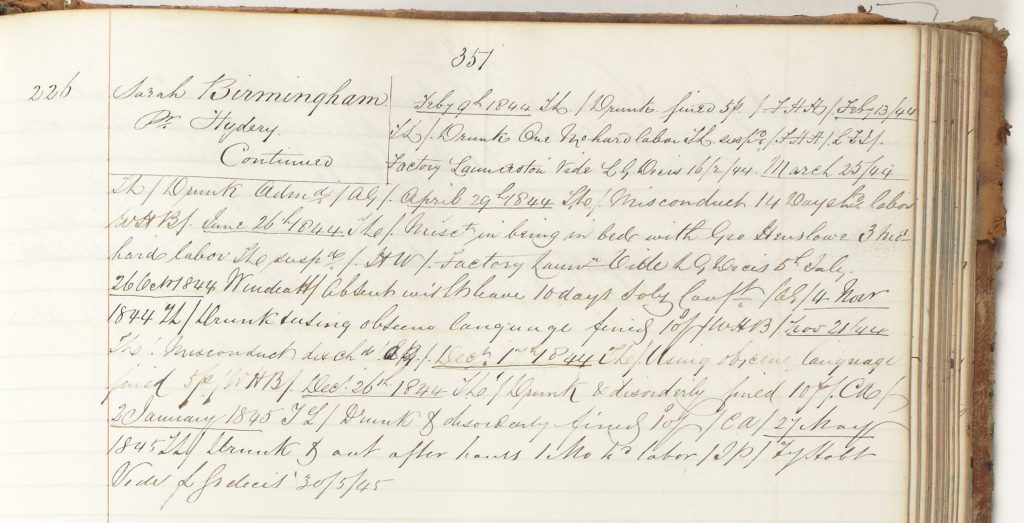 351
226 Sarah Birmingham
Pr. Hydery
Continued
Feby 9th 1844 TL / Drunk fined 5/. / F H H / Feby 13/44
TL /. Drunk One Mo hard labor TL susp /
Factory Launceston Vide L G Decis 16/2/44. March 25/44
TL / Drunk Admd / AG /. April 29th 1844 / Misconduct 14 Days hd labor
W H B /. June 26th 1844 / Misct in being in bed with Geo Henslowe 3 mos
hard labor susp / H W /. Factory Vide L G Decis 5th July.
26 Oct 1844 / Absent leave 10 days Soly Conft / 4 Novr
1844 TL / Drunk & using obscene language fined 10/ / W H B / Nov 21/44
/ Misconduct dischd / Decr 1844 / Using obscene language
fined 5/. / W H B /. Decr 26th 1844 / Drunk & disorderly fined 10/. /
2 January 1845 TL / Drunk & disorderly fined 10/ / 27 May
1845 TL / Drunk & out after hours 1 Mo hd labor / Fy Hobt
Vide decis 30/5/45